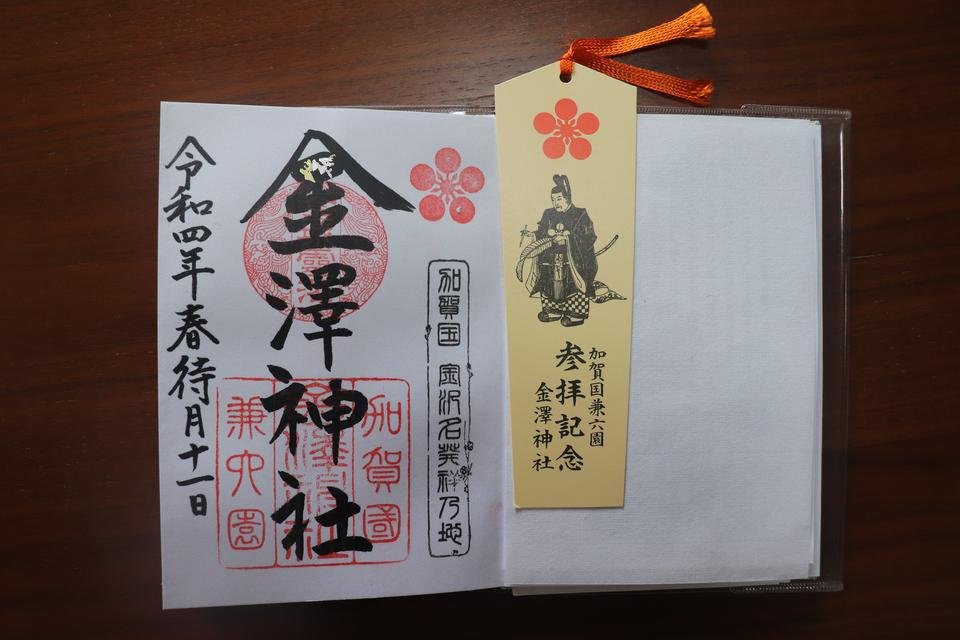 加賀国兼六園
参拝記念
金澤神社
加賀国 金沢名発祥乃地
金澤神社
加賀國
金澤神社
兼六園
令和四年春待月十一日